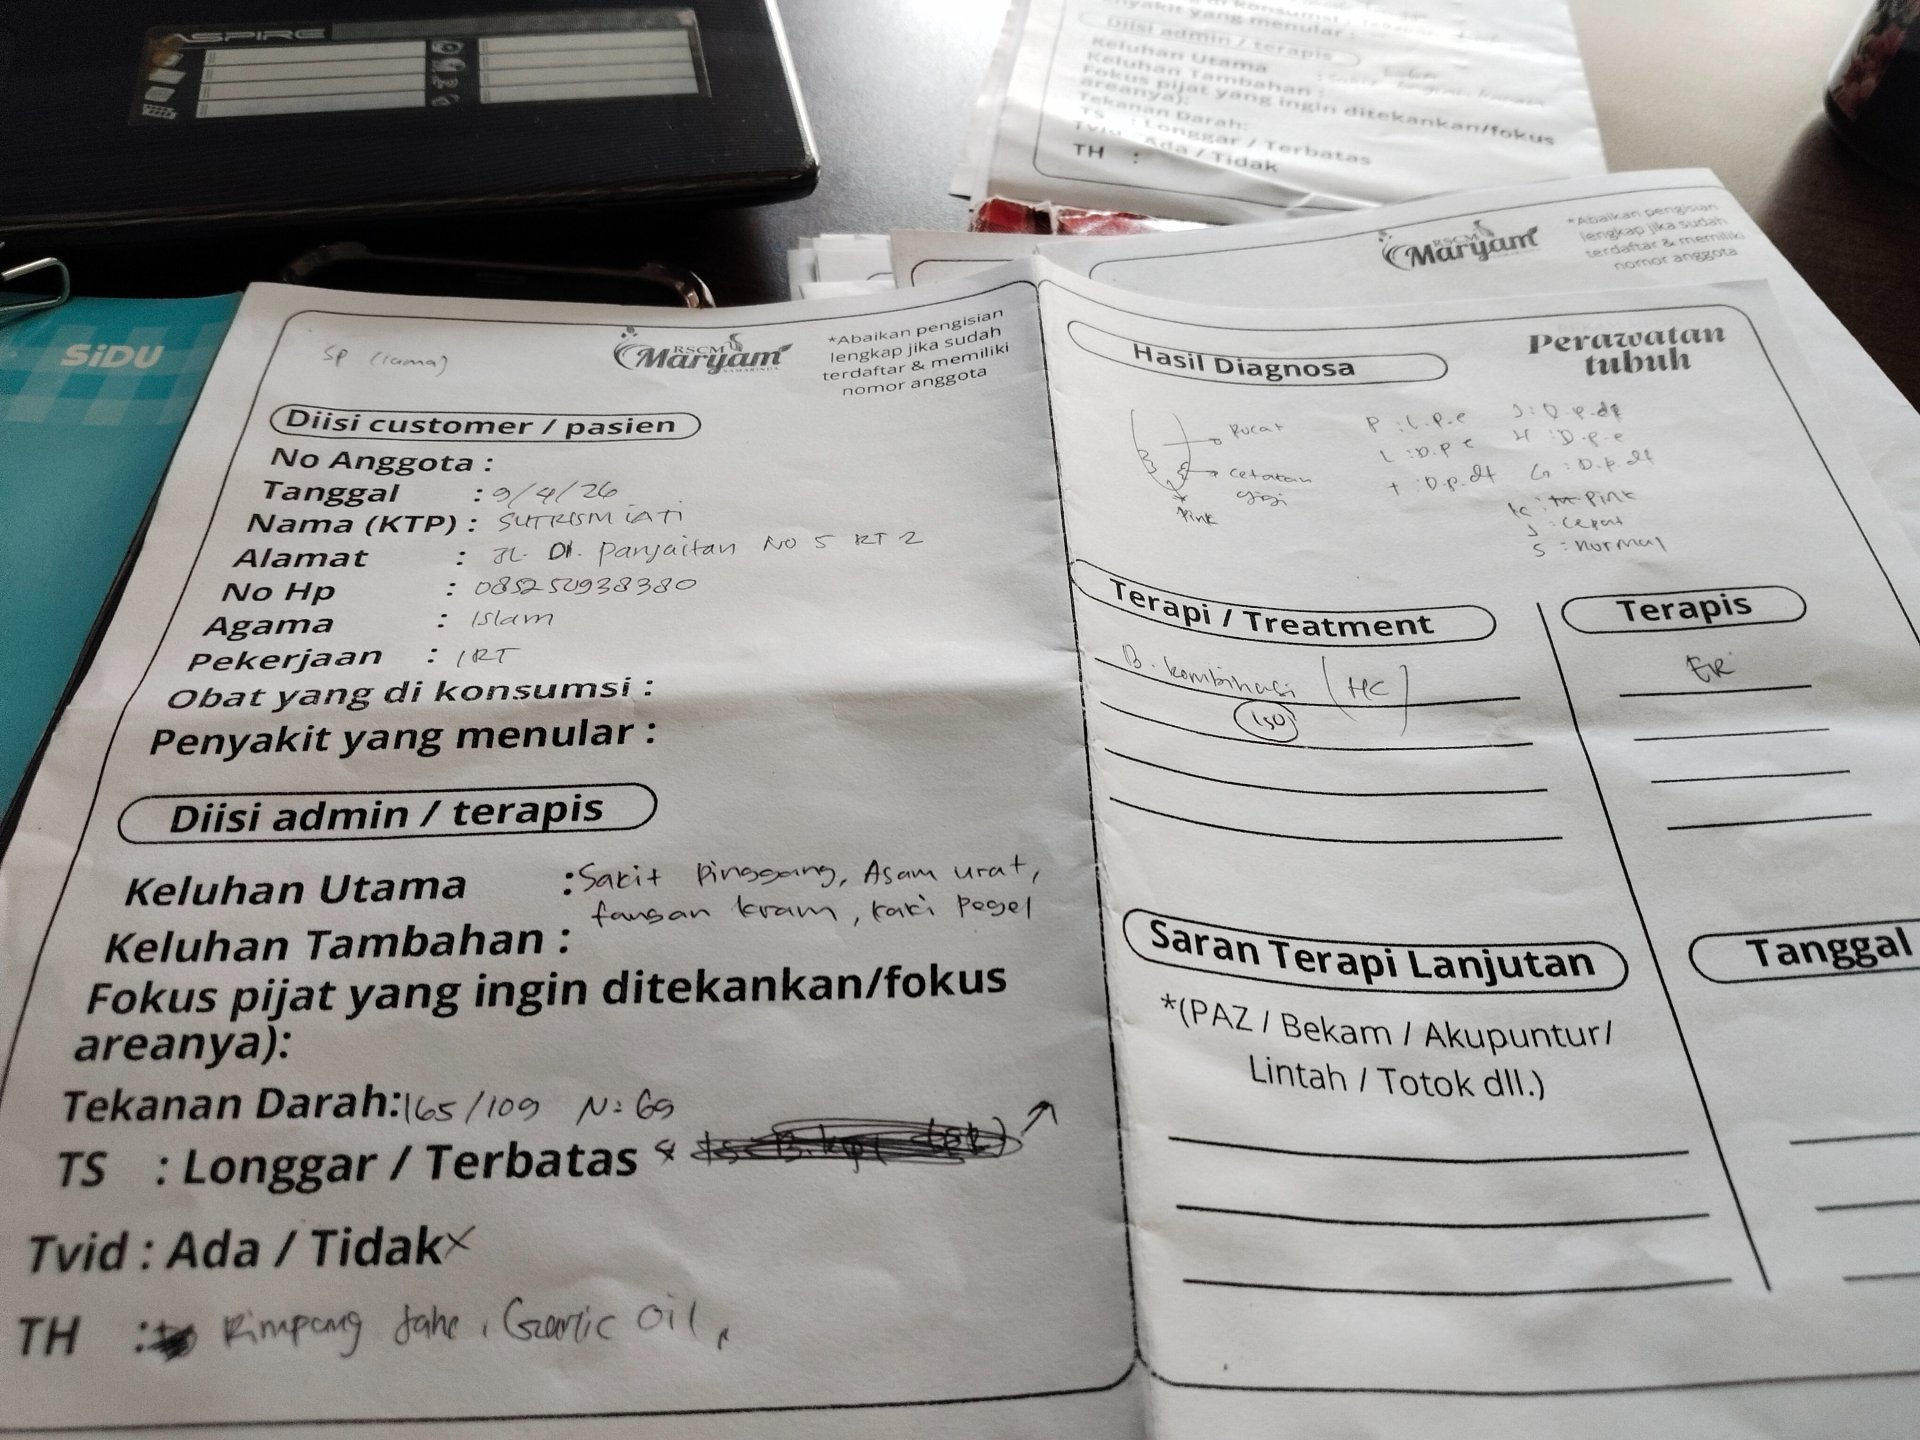 ASPIRE
nyakit yang menular :
Diisi admin / terapis
Keluhan Utama
Keluhan Tambahan :
Fokus pijat yang ingin ditekankan/fokus
areanya):
Tekanan Darah:
TS : Longgar / Terbatas
Tvid Ada / Tidak
TH :
RSCM
Maryam
*Abaikan pengisian
lengkap jika sudah
terdaftar & memiliki
nomor anggota
SiDU
SP (lama)
RSCM
Maryam
SAMARINDA
*Abaikan pengisian
lengkap jika sudah
terdaftar & memiliki
nomor anggota
Diisi customer / pasien
No Anggota :
Tanggal : 9/4/26
Nama (KTP) : SUTRISMIATI
Alamat : JL. DI. Panjaitan No 5 RT 2
No Hp : 085250938380
Agama : Islam
Pekerjaan : IRT
Obat yang di konsumsi :
Penyakit yang menular :
Diisi admin / terapis
Keluhan Utama : Sakit Pinggang, Asam urat,
tangan kram, kaki Pegel
Keluhan Tambahan :
Fokus pijat yang ingin ditekankan/fokus
areanya):
Tekanan Darah: 165/109 N: 69
TS : Longgar / Terbatas
Tvid : Ada / Tidak x
TH : Rimpang Jahe, Garlic Oil,
Hasil Diagnosa
Perawatan
tubuh
Pucat
cetakan
gigi
Pink
P : L.p.e
L : D.p.e
T : D.p.dt
J : D.p.dt
H : D.p.e
G : D.p.dt
K : Pink
J : Cepat
S : normal
Terapi / Treatment
B. kombinasi (HC)
150
Terapis
ER
Saran Terapi Lanjutan
*(PAZ / Bekam / Akupuntur/
Lintah / Totok dll.)
Tanggal